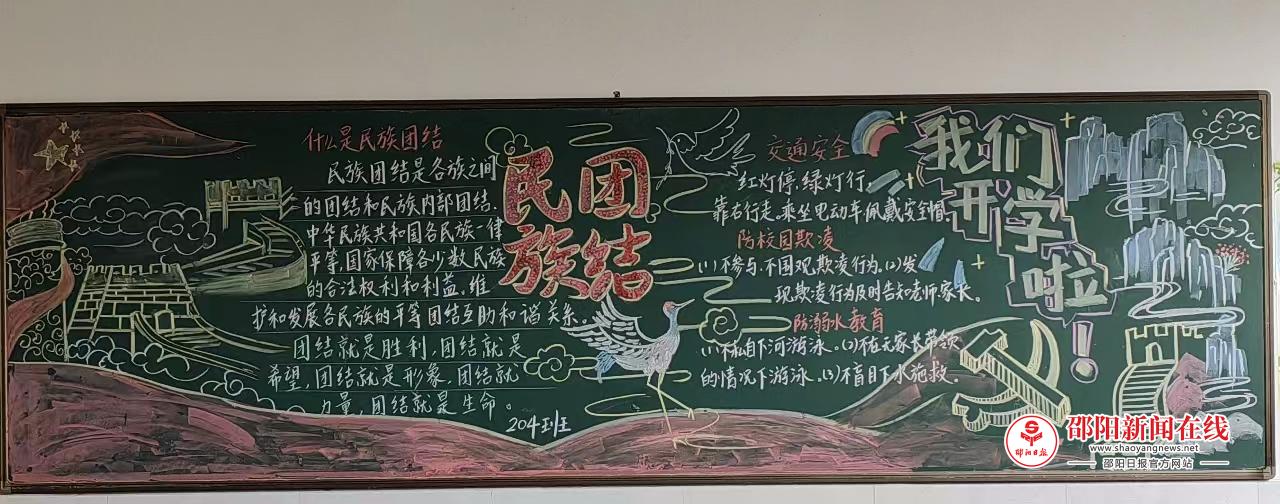 什么是民族团结
民族团结是各族之间
的团结和民族内部团结.
中华民族共和国各民族一律
平等,国家保障各少数民族
的合法权利和利益,维
护和发展各民族的平等团结互助和谐关系。
团结就是胜利,团结就是
希望,团结就是形象,团结就
力量,团结就是生命。
204班
民团
族结
交通安全
红灯停,绿灯行,
靠右行走,乘坐电动车佩戴安全帽.
防校园欺凌
(1)不参与,不围观欺凌行为.(2)发
现欺凌行为及时告知老师家长。
防溺水教育
(1)不私自下河游泳.(2)不在无家长带领
的情况下游泳.(3)不盲目下水施救.
我们
开学
啦!
邵阳日报
邵阳新闻在线
www.shaoyangnews.net
邵阳日报官方网站